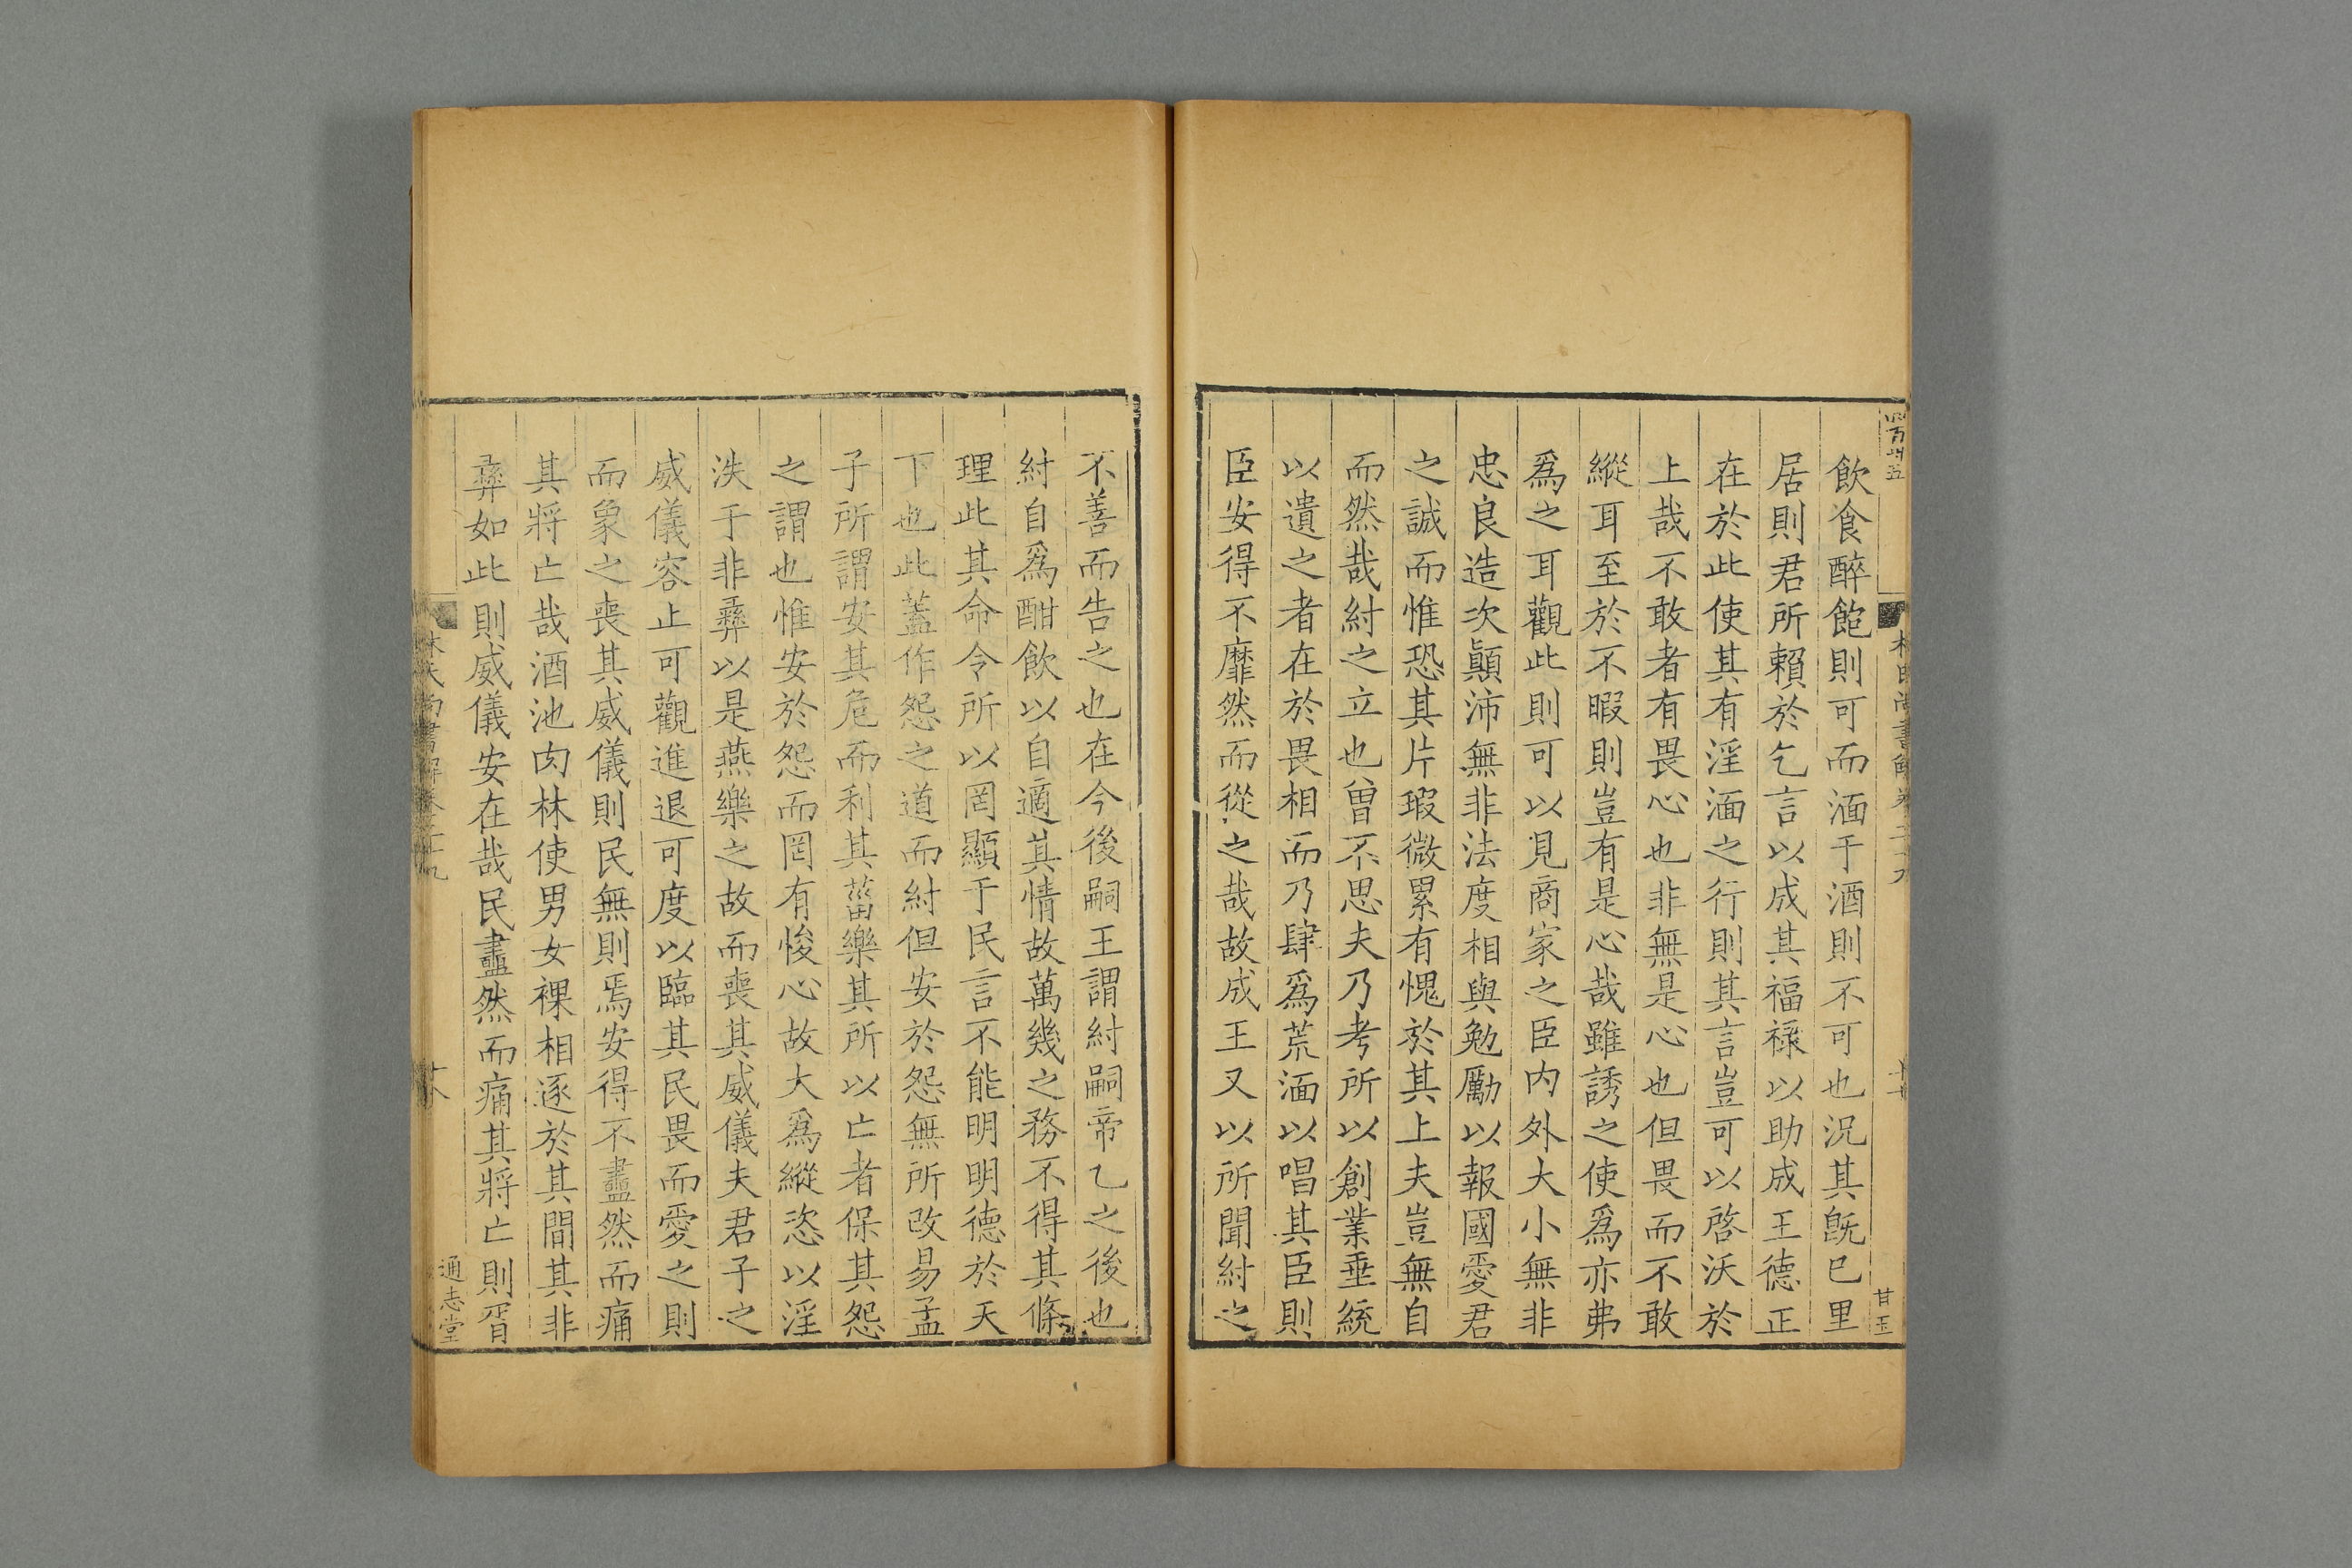 飲食醉飽則可而湎于酒則不可也況其旣已里
居則君所賴於乞言以成其福祿以助成王德正
在於此使其有淫湎之行則其言豈可以啓沃於
上哉不敢者有畏心也非無是心也但畏而不敢
縱耳至於不暇則豈有是心哉雖誘之使爲亦弗
爲之耳觀此則可以見商家之臣内外大小無非
忠良造次顚沛無非法度相與勉勵以報國愛君
之誠而惟恐其片瑕微累有愧於其上夫豈無自
而然哉紂之立也曾不思夫乃考所以創業垂統
以遺之者在於畏相而乃肆爲荒湎以唱其臣則
臣安得不靡然而從之哉故成王又以所聞紂之
不善而告之也在今後嗣王謂紂嗣帝乙之後也
紂自爲酣飲以自適其情故萬幾之務不得其條
理此其命令所以罔顯于民言不能明明德於天
下也此蓋作怨之道而紂但安於怨無所改易孟
子所謂安其危而利其菑樂其所以亡者保其怨
之謂也惟安於怨而罔有悛心故大爲縱恣以淫
泆于非彞以是燕樂之故而喪其威儀夫君子之
威儀容止可觀進退可度以臨其民畏而愛之則
而象之喪其威儀則民無則焉安得不衋然而痛
其將亡哉酒池肉林使男女裸相逐於其間其非
彞如此則威儀安在哉民衋然而痛其將亡則胥
林氏尚書解卷二十九
通志堂
甘玉